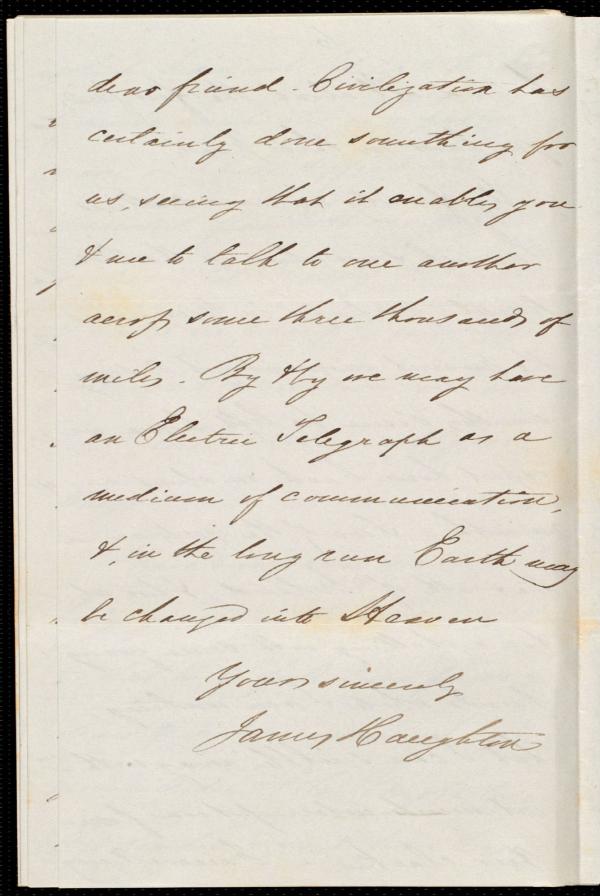 dear friend - Civilization has
certainly done something for
us, seeing that it enables you
& me to talk to one another
across some three thousands of
miles. By & by we may have
an Electric Telegraph as a
medium of communication,
&, in the long run Earth may
be changed into Heaven
Yours sincerely
James Haughton